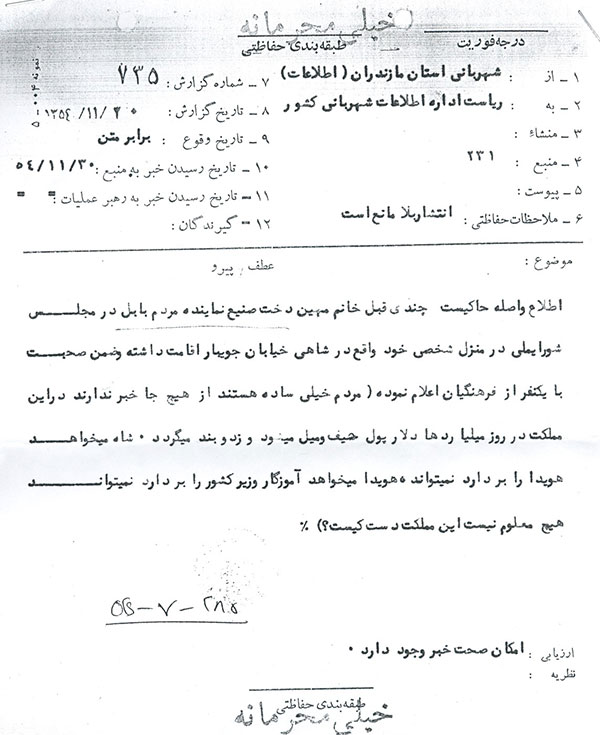 خیلی محرمانه
درجه فوریت
طبقه‌بندی حفاظتی
نمونه ۰۰۴ - ۵
۱ - از : شهربانی استان مازندران ( اطلاعات )
۲ - به : ریاست اداره اطلاعات شهربانی کشور
۳ - منشاء :
۴ - منبع : ۲۳۱
۵ - پیوست :
۶ - ملاحظات حفاظتی : انتشار بلا مانع است
۷ - شماره گزارش : ۷۳۵
۸ - تاریخ گزارش : ۳۰ /۱۱/ ۱۳۵۴
۹ - تاریخ وقوع : برابر متن
۱۰ - تاریخ رسیدن خبر به منبع : ۵۴/۱۱/۳۰
۱۱ - تاریخ رسیدن خبر به رهبر عملیات : - -
۱۲ - گیرندگان :
موضوع :
عطف , پیرو
اطلاع واصله حاکیست چندی قبل خانم مهین دخت صنیع نماینده مردم بابل در مجلس
شورایملی در منزل شخصی خود واقع در شاهی خیابان جویبار اقامت داشته وضمن صحبت
با یکنفر از فرهنگیان اعلام نموده ( مردم خیلی ساده هستند از هیچ جا خبر ندارند دراین
مملکت در روز میلیا ردها دلار پول حیف ومیل میشود و زدو بند میگردد ۰ شاه میخواهد
هویدا را بر دارد نمیتواند ه هویدا میخواهد آموزگار وزیر کشور را بر دارد نمیتواند
هیچ معلوم نیست این مملکت دست کیست؟) ٪
۲۸۵ - ۷ - ۵۵
ارزیابی : امکان صحت خبر وجود دارد ۰
نظریه :
طبقه‌بندی حفاظتی
خیلی محرمانه